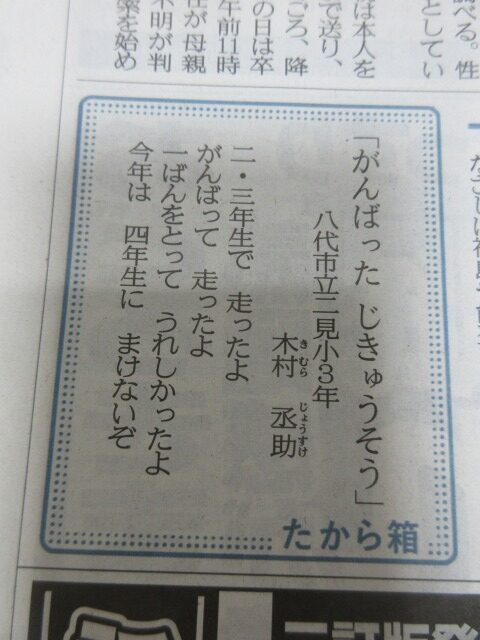 「がんばった じきゅうそう」
八代市立二見小3年
木村 丞助
きむら じょうすけ
二・三年生で 走ったよ
がんばって 走ったよ
一ばんをとって うれしかったよ
今年は 四年生に まけないぞ
たから箱
調べる。性
としてい
は本人を
で送り、
ごろ、降
の日は卒
午前11時
社が母親
不明が判
索を始め